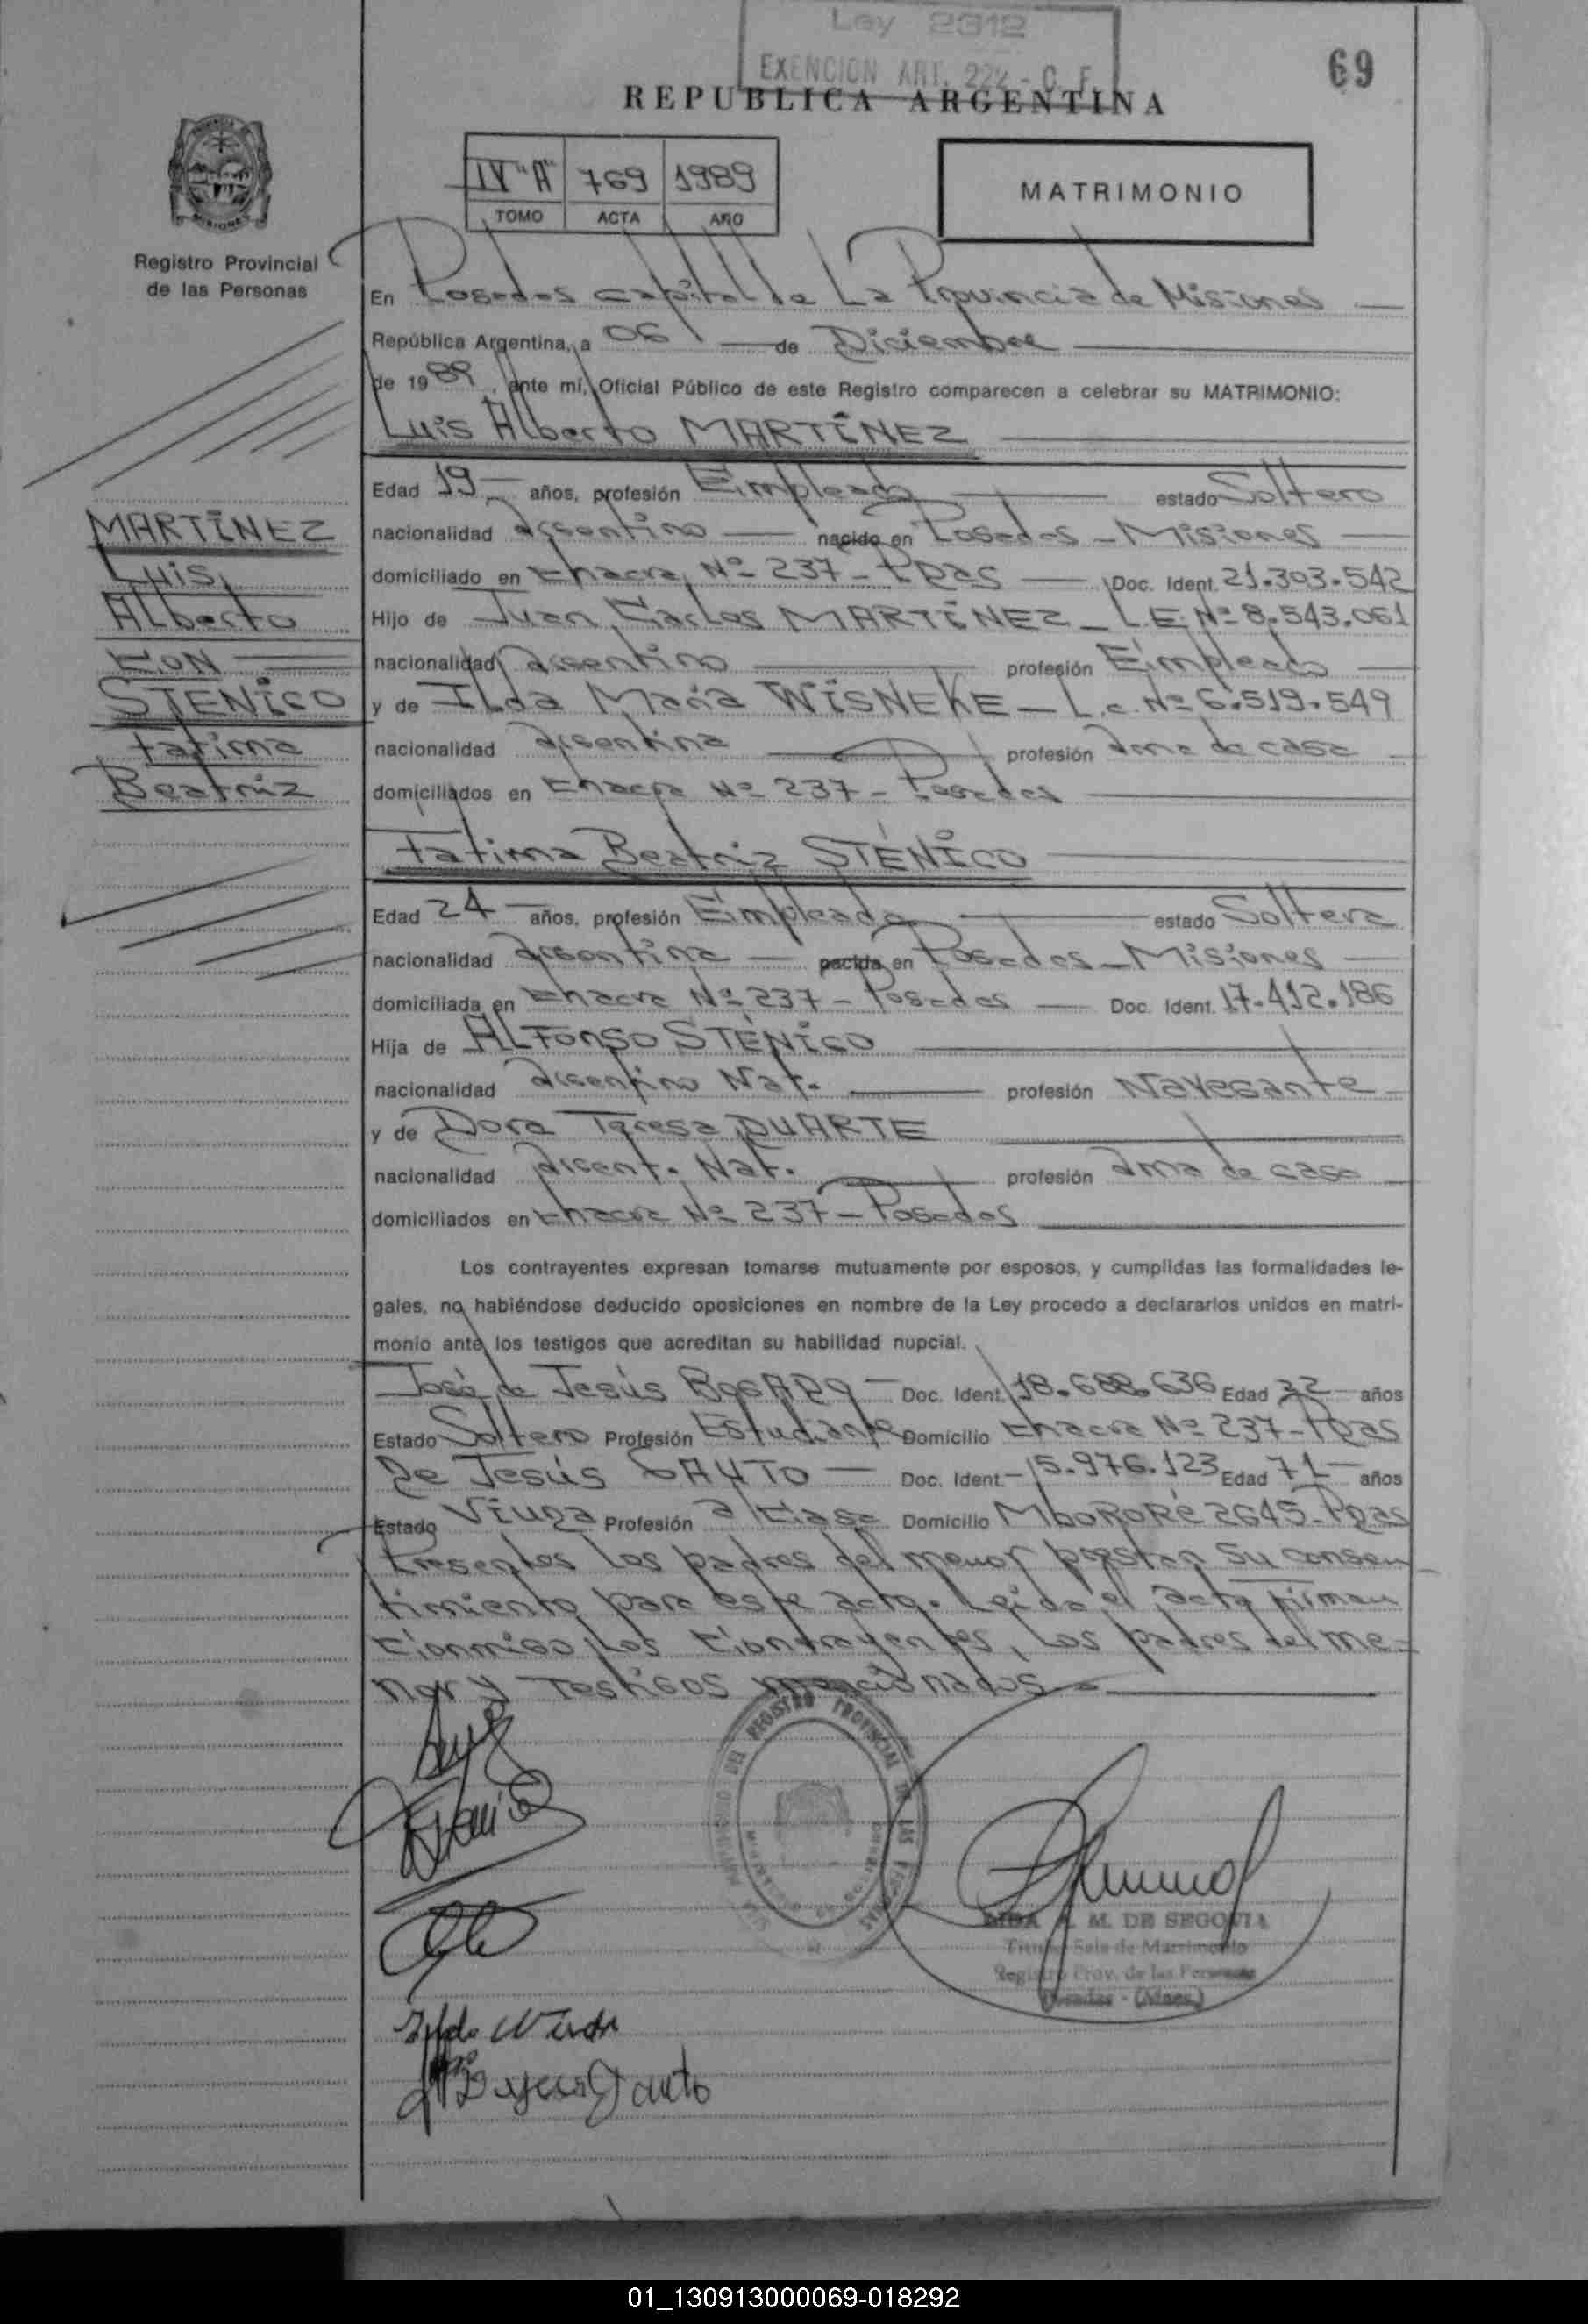 Ley 2312
EXENCION ART. 222 - C. F.
69
REPUBLICA ARGENTINA
IV "A" 769 1989
TOMO ACTA AÑO
MATRIMONIO
Registro Provincial
de las Personas
En Posadas capital de La Provincia de Misiones
República Argentina, a 06 de Diciembre
de 1989, ante mí, Oficial Público de este Registro comparecen a celebrar su MATRIMONIO:
Luis Alberto MARTÍNEZ
Edad 19 años, profesión Empleado estado Soltero
nacionalidad argentino nacido en Posadas - Misiones
domiciliado en Chacra Nº 237 - Pdas Doc. Ident. 21.303.542
Hijo de Juan Carlos MARTÍNEZ - L.E. Nº 8.543.061
nacionalidad argentino profesión Empleado
y de Ilda María WISNEKE - L.c. Nº 6.519.549
nacionalidad argentina profesión ama de casa
domiciliados en Chacra Nº 237 - Posadas
MARTÍNEZ
Luis
Alberto
CON
STENICO
Fatima
Beatriz
Fatima Beatriz STÉNICO
Edad 24 años, profesión Empleada estado Soltera
nacionalidad argentina nacida en Posadas - Misiones
domiciliada en Chacra Nº 237 - Posadas Doc. Ident. 17.412.186
Hija de ALFONSO STÉNICO
nacionalidad argentino Nat. profesión Navegante
y de Dora Teresa DUARTE
nacionalidad argent. Nat. profesión ama de casa
domiciliados en Chacra Nº 237 - Posadas
Los contrayentes expresan tomarse mutuamente por esposos, y cumplidas las formalidades le-
gales, no habiéndose deducido oposiciones en nombre de la Ley procedo a declararlos unidos en matri-
monio ante los testigos que acreditan su habilidad nupcial.
José de Jesús Doc. Ident. 18.688.636 Edad 22 años
Estado Soltero Profesión Estudiante Domicilio Chacra Nº 237 - Pdas
De Jesús SAUTO Doc. Ident. 5.976.123 Edad 71 años
Estado Viuda Profesión a Casa Domicilio Mbororé 2645 - Pdas
Presentes los padres del menor prestan su consen
timiento para este acto. Leida el acta firman
Conmigo, los Contrayentes, los padres del me-
nor y Testigos mencionados
REGISTRO PROVINCIAL DE LAS PERSONAS
M. DE SEGOVIA
Sala de Matrimonio
Registro Prov. de las Personas
Posadas - (Mnes.)
01_130913000069-018292